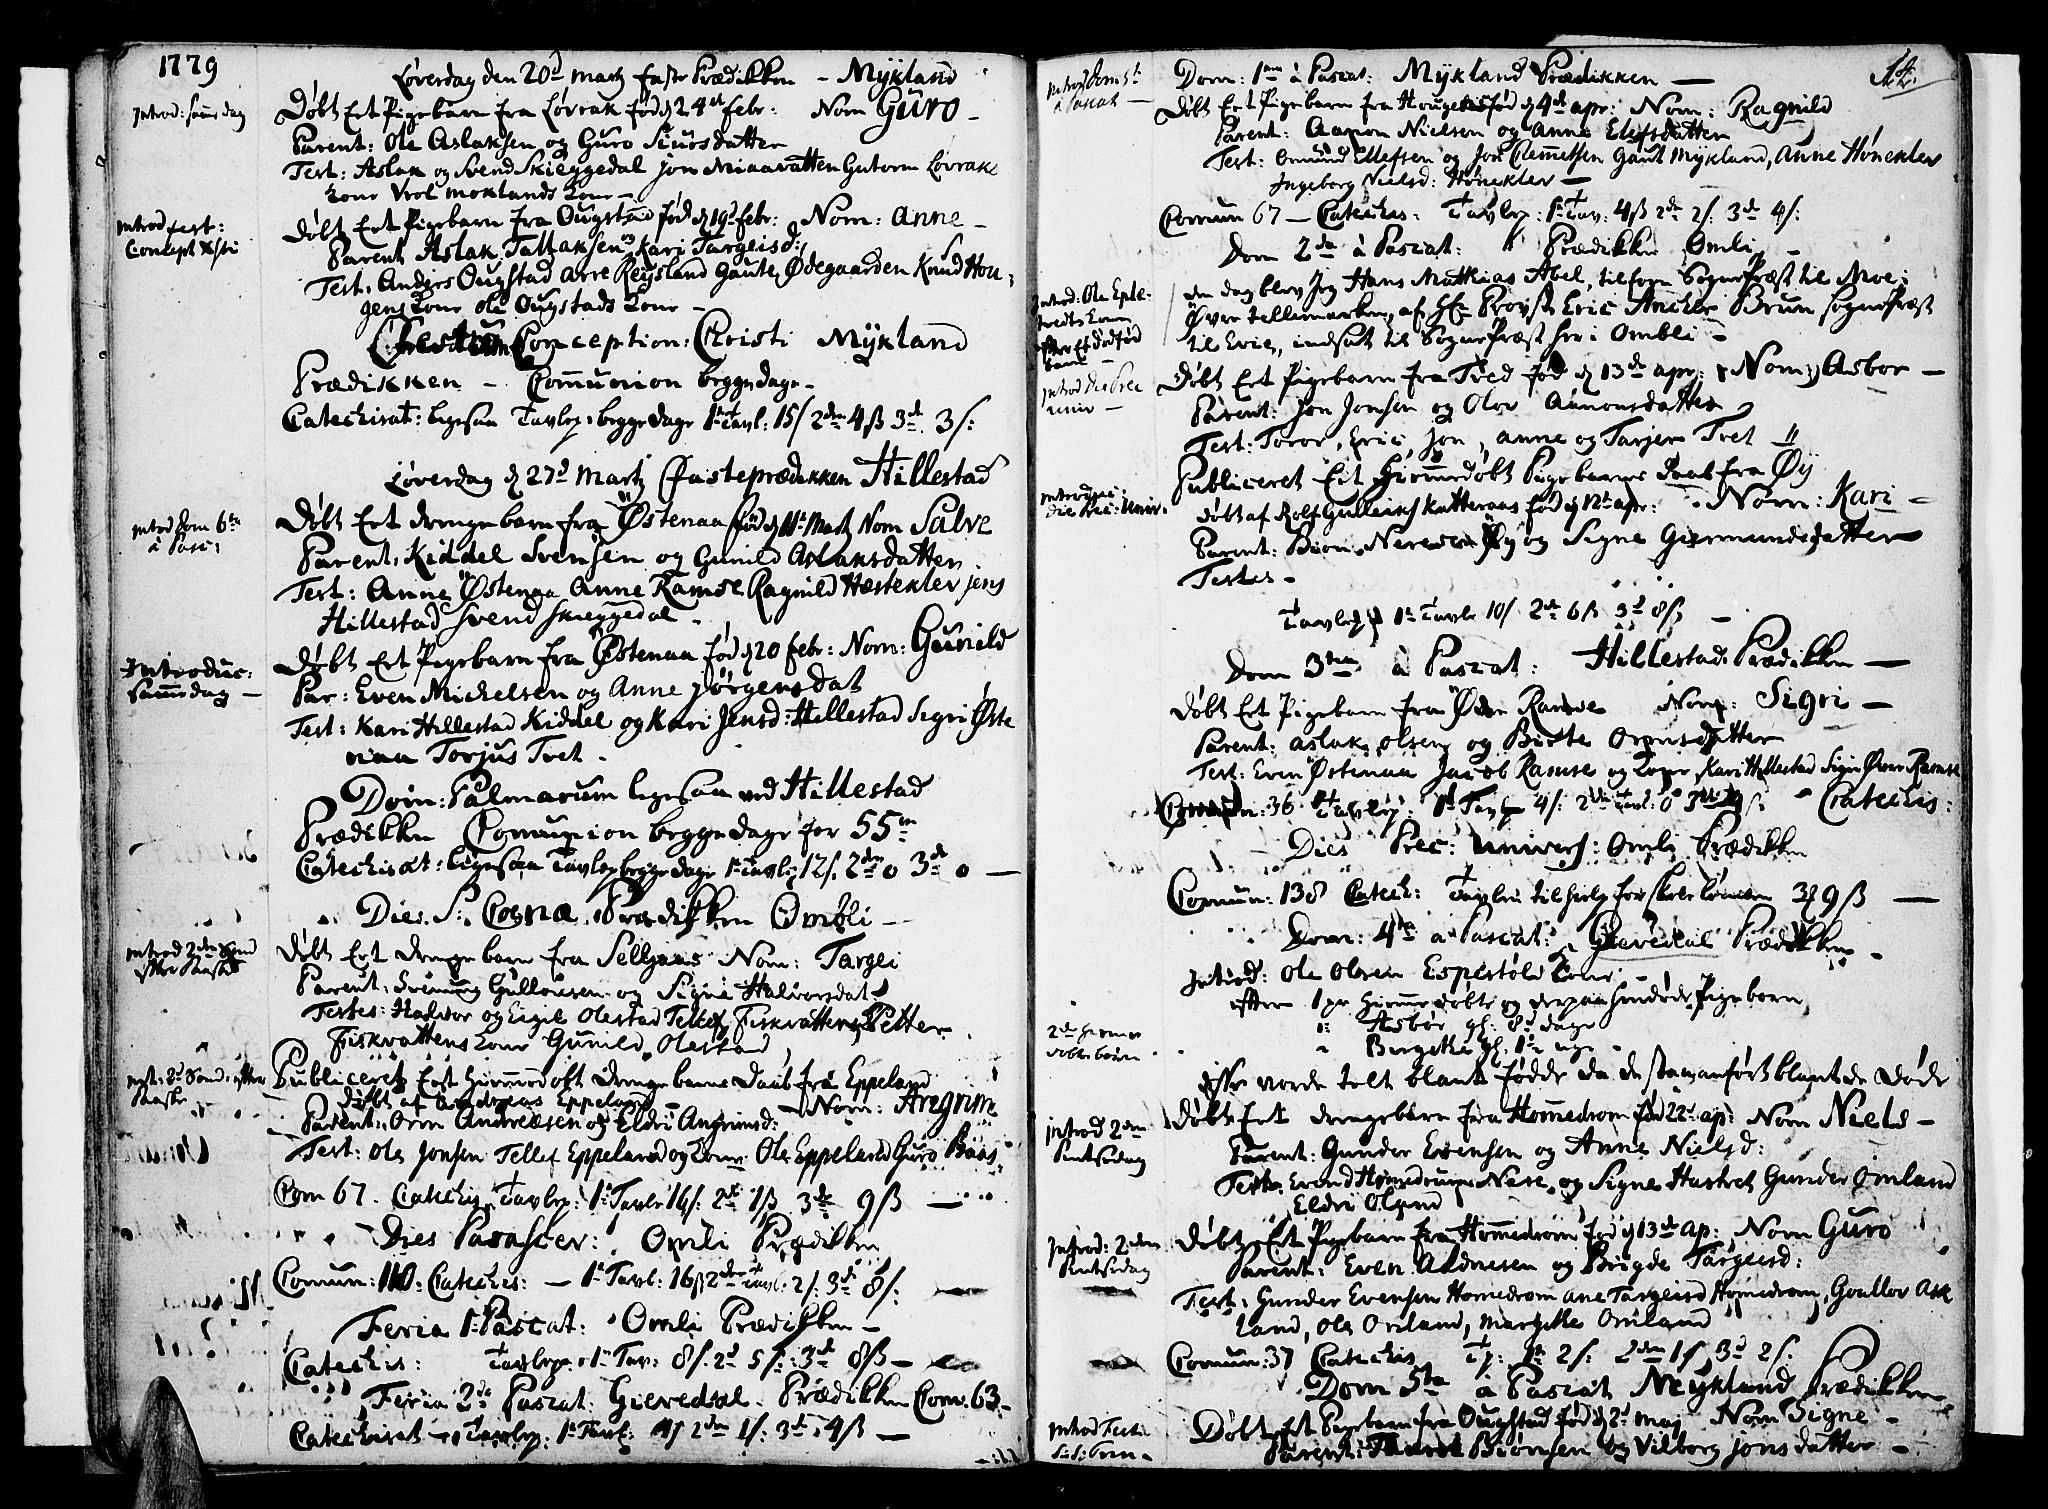 1779
Løverdag den 20d Martz faste Prædikken - Mykland
Introd: samme dag
Døbt Ert Pigebarn fra Løvrak fød d 24de febr: Nom Guro -
Parent: Ole Aslaksen og Guro Siursdatter
Test: Aslak og Svend Skieggedal Jon Miaavatten Gutorm Løvraks
kone Vrol Moklands kone -
Introd fest:
Concept Xsti
Døbt Ert Pigebarn fra Ougstad fød d 19d febr: Nom: Anne -
Parent Aslak Tallaksen Kari Targeisd:
Test: Anders Ougstad Arre Reysland Gaute Ødegaarden Knud Hou-
gens kone Ole Ougstads kone -
Festum Conception: Christi Mykland
Prædikken - Communion begge dage -
Catechisat: ligesaa Tavlep: begge dage 1te Tavl: 15/ 2den 4ß 3de 3/:
Løverdag d 27d Martz Fasteprædikken Hillestad
Introd Dom 6ta
à Pasc:
Døbt Ert drenge barn fra Østenaa fød d 11te Martz Nom Salve
Parent: Kiddel Svensen og Gunild Aslaksdatter
Test: Anne Østenaa Anne Ramse Ragnild Hestekler Jens
Hillestad Svend Skieggedal -
Introduc:
samme dag -
Døbt Ert Pigebarn fra Østenaa fød d 20 febr: Nom: Gunild
Par: Even Michelsen og Anne Jørgensdat
Test: Kari Hillestad Kiddel og Kari Jensd: Hillestad Sigri Øste
naa Torjus Tvet -
Dom: Palmarum ligesaa ved Hillestad
Prædikken Communion begge dage for 55
Catechisat: ligesaa Tavlep begge dage 1te Tavle 12/. 2den 0 3de 0 -
Dies S: Coenæ Prædikken Ombli -
Introd 2den Sønd
efter Paaske
Døbt Ert Drenge barn fra Selljaas Nom: Targei
Parent: Svenung Gullousen og Signe Halvorsdat
Testes: Hadvor og Eigil Olestad Tellef Fiskvattens Petter
Fiskvattens kone Gunild Olestad
Int: 2d Sønd: efter
Paaske
Publiceret Eert hiemmedøbt Drenge barns Daab fra Eppeland
døbt af Andreas Eppeland - Nom: Aregrim
Parent: Orm Andreæsen og Eldri Angrimsd:
Test: Ole Jonsen Tellef Eppeland og kone Ole Eppeland Guro Baas
Com 67. Catechis. Tavlep: 1te Tavle 16/: 2de 1ß 3de 9ß -
Dies Parasceu: Omli Prædikken
Comun: 110: Catechis: - 1te Tavl: 16ß 2den Tavl: 2/: 3de 8/:
Feria 1: Pascat: Omli Prædikken -
Catechis: Tavlep: 1te Tav: 8/. 2d 5/: 3de 8ß -
Feria 2da Pascat: Gievedal - Prædikken Com: 63 -
Catechisat - Tavlep: 1te Tavl: 4/ 2den 1/: 3de 4ß -
12.
Introd Dom 5t
à Pascat -
Dom: 1ma à Pascat: Mykland Prædikken -
Døbt Ert Pigebarn fra fød d 4de apr: Nom: Ragnild
Parent: Aanon Nielsen og Anne Elefsdatter
Test: Omund Ellefsen og Jon Clemetsen Gaut Mykland, Anne Hønekler
Ingeborg Nielsd: Hønekler -
Comun 67 - Catechis: Tavlep: 1te Tav: 4ß 2de 2/: 3de 4/:
Dom 2da à Pascat: Prædikken Omli -
Introd: Ole Eple-
efter Et dødfød
barn
den dag blev Jeg Hans Mathias Abel, tilforn SognePræst til Moe i
Øver tellemarken, af Hr Provst Eric Ancher Brun SognePræst
til Evie, indsat til SognePræst her i Ombli -
Introd dies Prec
univ -
Døbt Ert Pigebarn fra Tved fød d 13de apr: Nom: Asbor -
Parent: Jon Jonsen og Olov Aanonsdatter
Test: Toror, Eric, Jon, Anne og Tarjer Tvet
Introduc:
die Prec: Univ:
Publiceret Eet Hiemmedøbt Pigebarns daab fra Øy
døbt af Rolf Gulleiks Katteraas fød d 12te apr: - Nom: Kari -
Parent: Biøn Neresen Øy og Signe Giermundsdatter
Testes -
Tavlep 1te Tavle 10/ 2de 6ß 3d 8ß -
Dom 3tia à Pascat: Hillestad Prædikken -
Døbt Ert Pigebarn fra Øvre Ramse Nom: Sigri -
Parent: Aslak Olsen og Birte Ormsdatter
Test: Even Østenaa Jacob Ramse og kone Kari Hillestad Sign Øvre Ramse
Comun: 36 Tavlep: 1te Tavle 4/: 2den Tavl: 0 3de Catechis:
Dies Prec: Univers: Omli Prædikken
Comun: 138 Catech: Tavlen til hielp for skole 9ß -
Dom: 4ta à Pascat: Gievedal Prædikken -
Introd: Ole Olsen Espestøls kone -
efter 1 par hiemme døbte og derpaa hendøde Pigebørn
1: Asbør gl: 8d dage
Birgithe gl: 1te uge -
2de hiemme
døbte børn
disse vorde telt blant fødde da de staa anført blant de Døde
Introd 2den
Pintsedag
Døbt Ert drengebarn fra Hommedrom fød 22d ap: Nom Niels -
Parent: Gunder Evensen og Anne Nielsd:
Test: Erend Nese, og Signe Hustvet Gunder Omland
Eldri Olsen
Introd: 2den
Pintsedag
Døbt Ert Pigebarn fra Hommedrom fød d 13de ap: Nom Guro
Parent: Even Aadnesen og Brigde Targeisd:
Test: Gunder Evensen Homedrom ane Targeisd Homedrom, Goullov Ask
land, Ole Omland, Margithe Omland
Comun: 37 Catechis Tp: 1te 2/: 2den 1/ 3d 2/:
Dom 5ta à Pascat Mykland Prædikken
Introd Festi
Døbt Ert Pigebarn fra Ougstad fød d 2d maj Nom Signe -
Parent: Biønsen og Vilborg Jonsdatter -